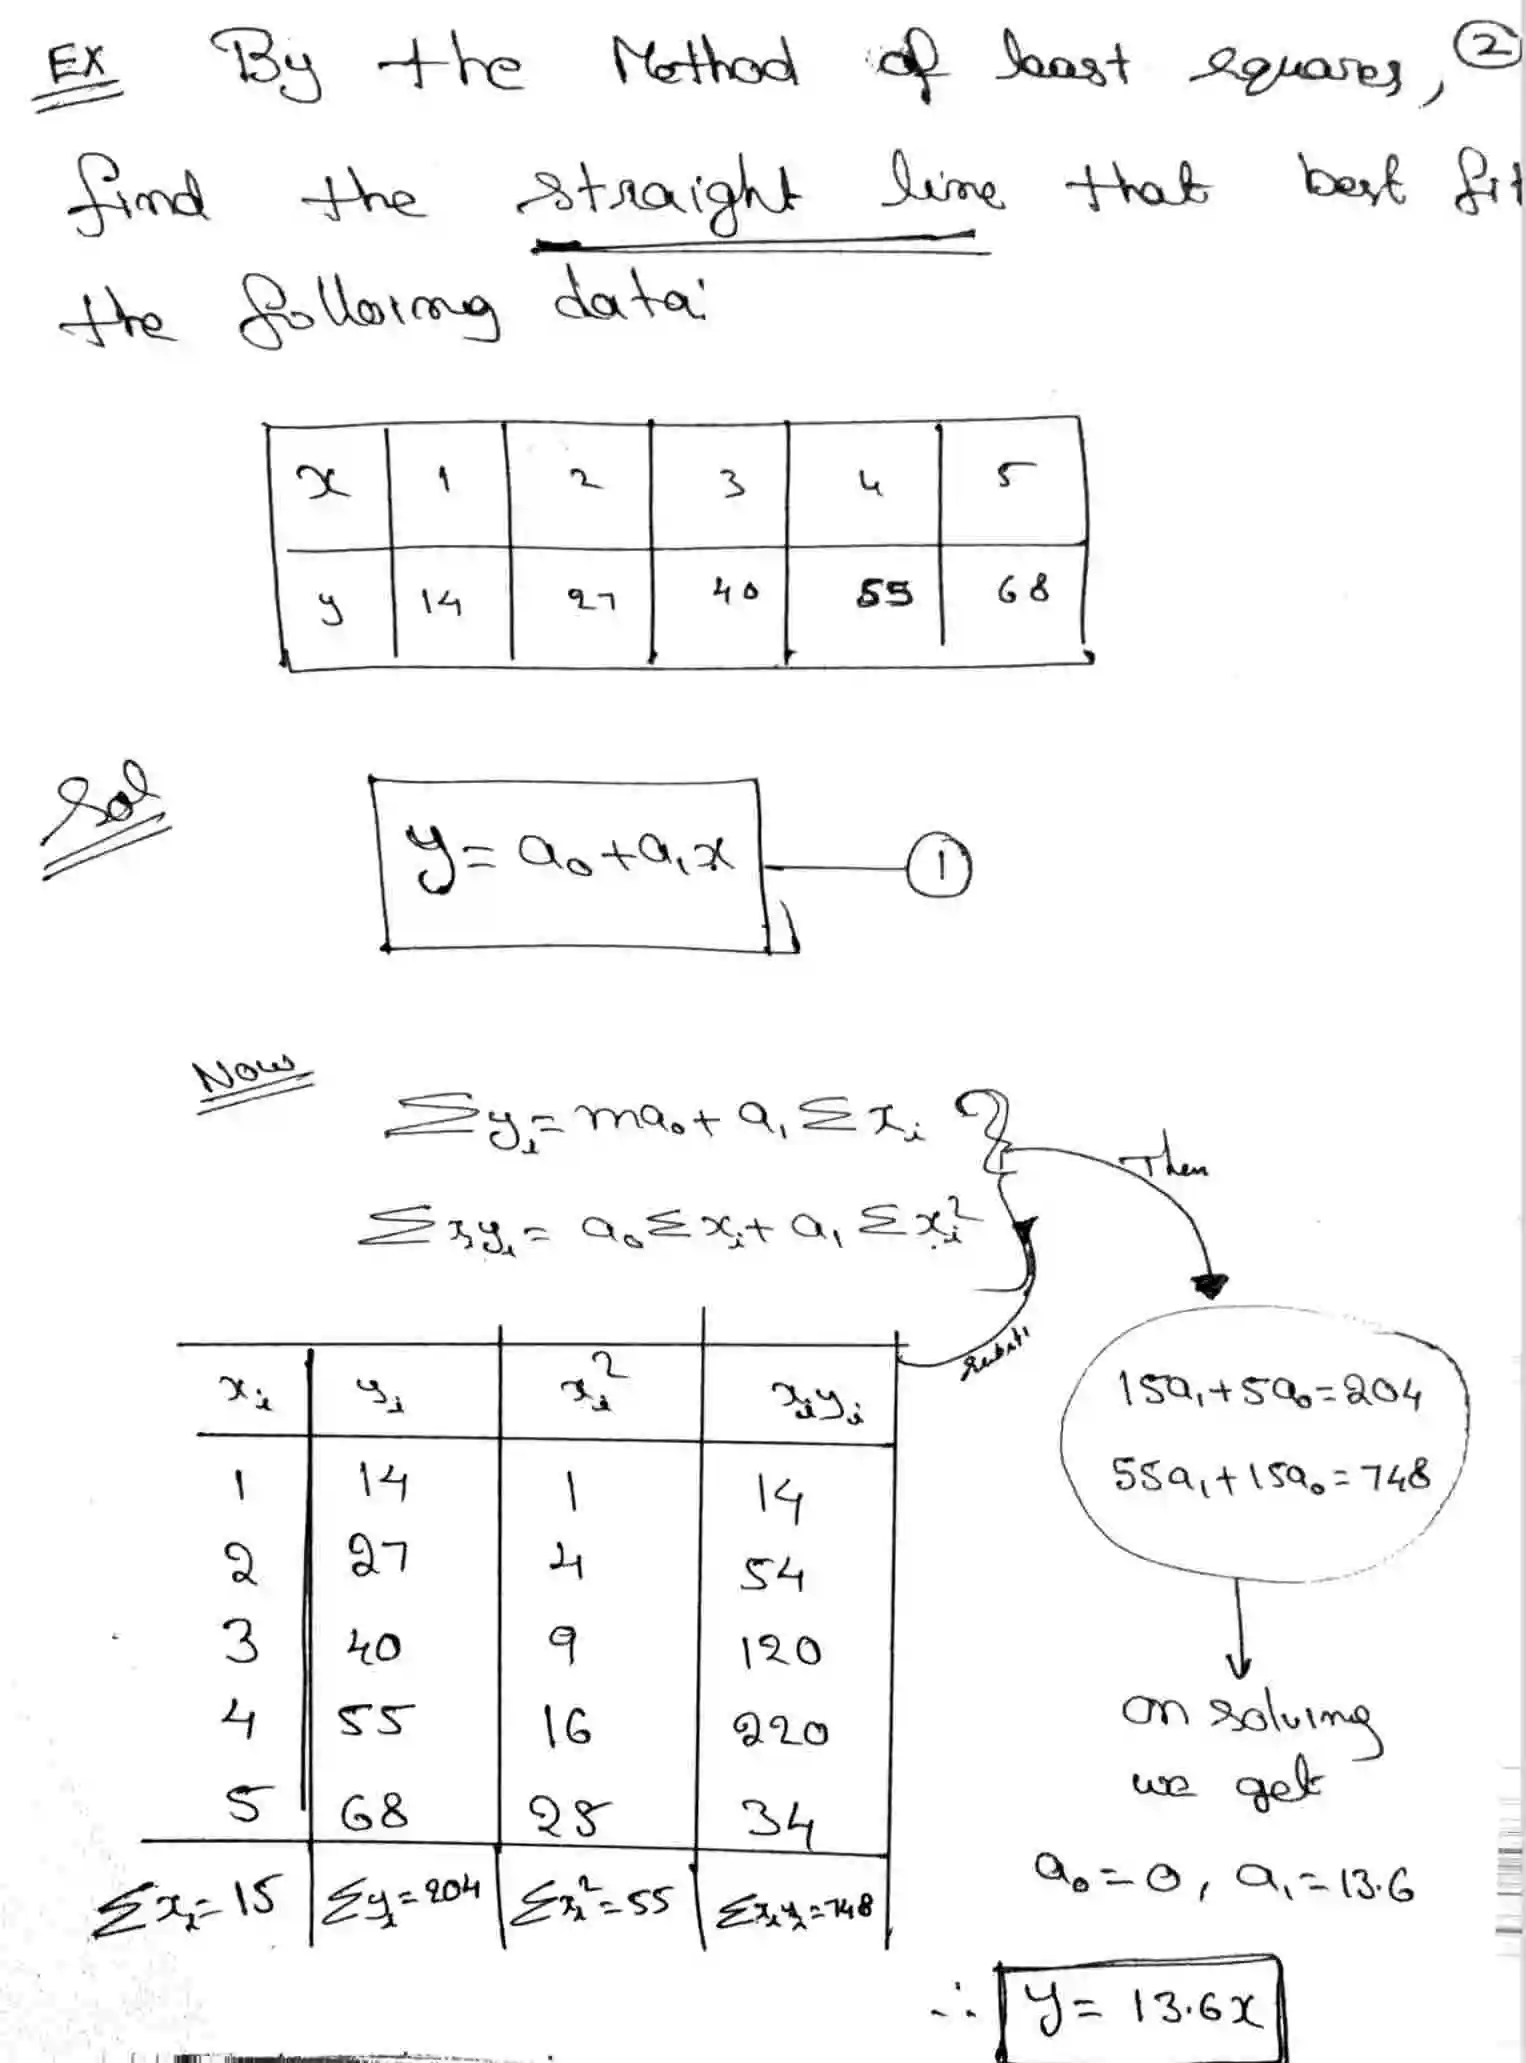 Ex By the Method of least squares, ②
find the straight line that best fit
the following data:
x 1 2 3 4 5
y 14 27 40 55 68
Sol
y = a₀ + a₁x — ①
Now
Σyᵢ = ma₀ + a₁Σxᵢ
Then
Σxᵢyᵢ = a₀Σxᵢ + a₁Σxᵢ²
xᵢ yᵢ xᵢ² xᵢyᵢ
1 14 1 14
2 27 4 54
3 40 9 120
4 55 16 220
5 68 25 34
Σxᵢ = 15 Σyᵢ = 204 Σxᵢ² = 55 Σxᵢyᵢ = 748
15a₁ + 5a₀ = 204
55a₁ + 15a₀ = 748
on solving
we get
a₀ = 0, a₁ = 13.6
∴ y = 13.6x